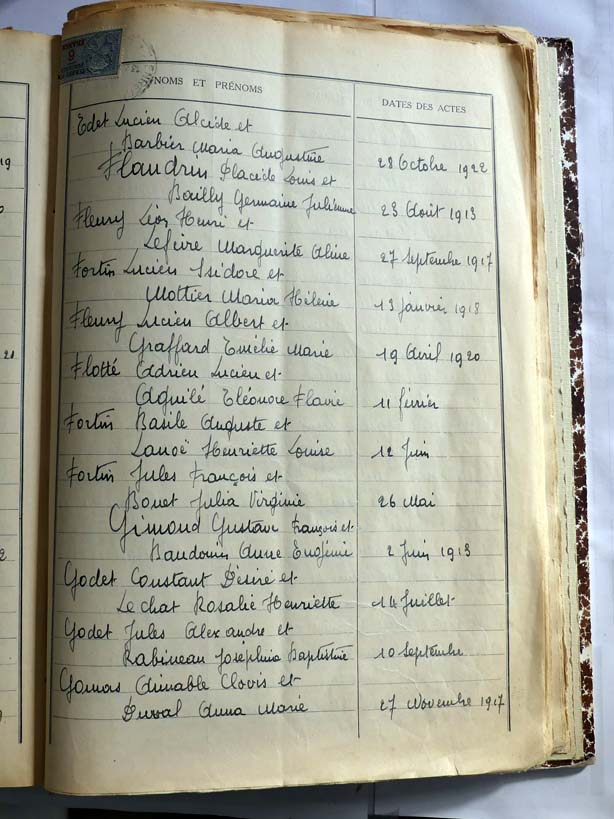 NOMS ET PRÉNOMS
DATES DES ACTES
Edet Lucien Alcide et
Barbier Maria Augustine 28 Octobre 1922
Flandrin Placéde Louis et
Bailly Germaine Julienne 23 Août 1913
Fleury Léon Henri et
Lefèvre Marguerite Aline 27 Septembre 1917
Fortin Lucien Isidore et
Mottier Maria Hélène 13 Janvier 1918
Fleury Lucien Albert et
Graffard Emélie Marie 19 Avril 1920
Flotté Adrien Lucien et
Aguilé Eléonore Flavie 11 février
Fortin Basile Auguste et
Lanoë Henriette Louise 12 Juin
Fortin Jules François et
Bouet Julia Virginie 26 Mai
Gimond Gustave François et
Baudouin Anne Eugénie 2 Juin 1913
Godet Constant Désiré et
Lechat Rosalie Henriette 14 Juillet
Godet Jules Alexandre et
Rabineau Joséphina Baptistine 10 Septembre
Aimable Clovis et
Duval Anna Marie 27 Novembre 1917
19
20
2